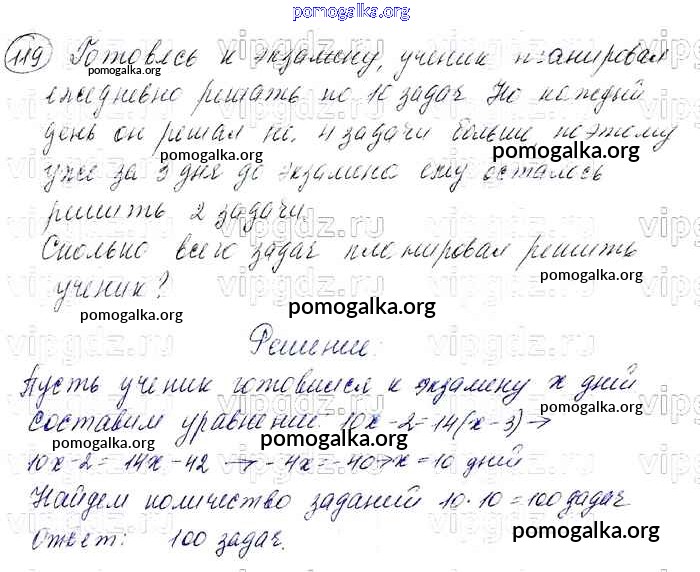 pomogalka.org
119 Готовясь к экзамену, ученик планировал
pomogalka.org
ежедневно решать по 10 задач Но каждый
день он решал на 4 задачи больше поэтому
pomogalka.org pomogalka.org
уже за 3 дня до экзамена ему осталось
решить 2 задачи.
Сколько всего задач планировал решить
ученик?
pomogalka.org
pomogalka.org
pomogalka.org
Решение:
Пусть ученик готовился к экзамену x дней
составим уравнение: 10x-2=14(x-3)→
pomogalka.org
pomogalka.org
10x-2=14x-42 → -4x=-40→x=10 дней
Найдем количество заданий 10·10=100 задач
pomogalka.org
Ответ: 100 задач.
pomogalka.org
vipgdz.ru